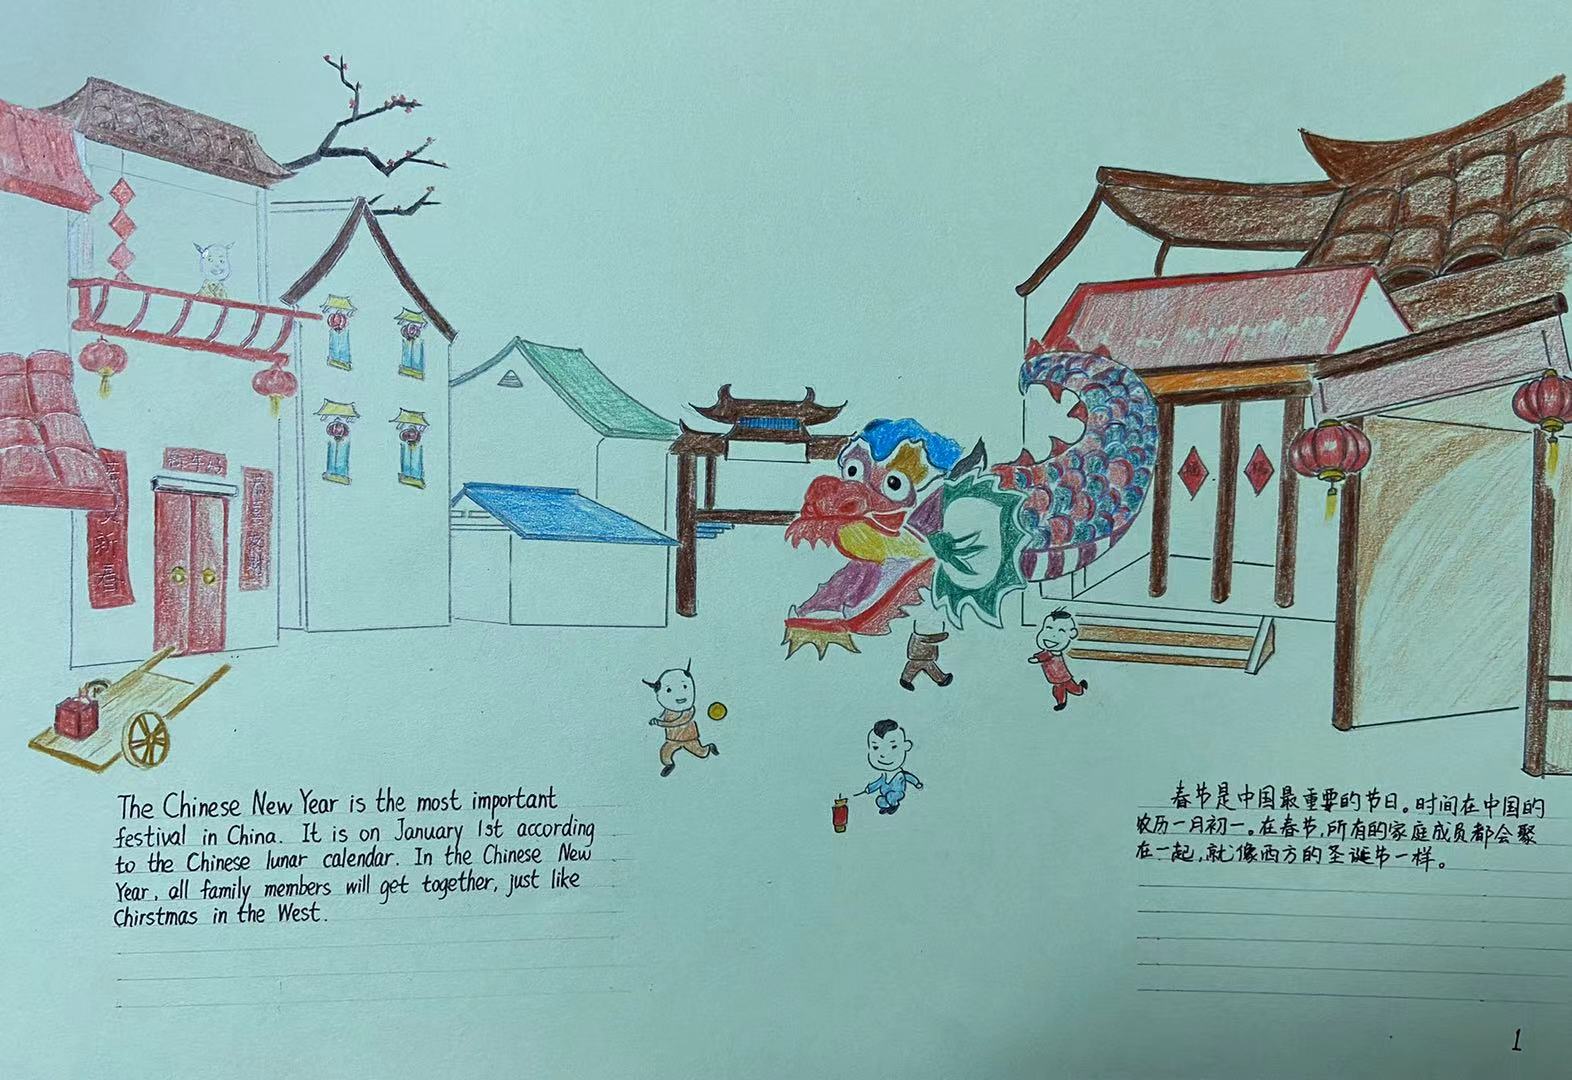 新年好
恭贺新春
恭喜发财
福
福
The Chinese New Year is the most important
festival in China. It is on January 1st according
to the Chinese lunar calendar. In the Chinese New
Year, all family members will get together, just like
Chirstmas in the West.
春节是中国最重要的节日。时间在中国的
农历一月初一。在春节,所有的家庭成员都会聚
在一起,就像西方的圣诞节一样。
1